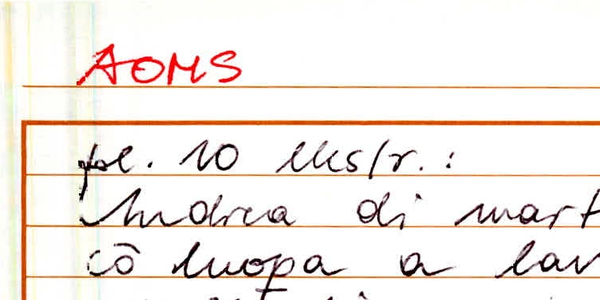 AOMS
pl. 10 ekstr.:
Andrea di mart
cō luopa a lav